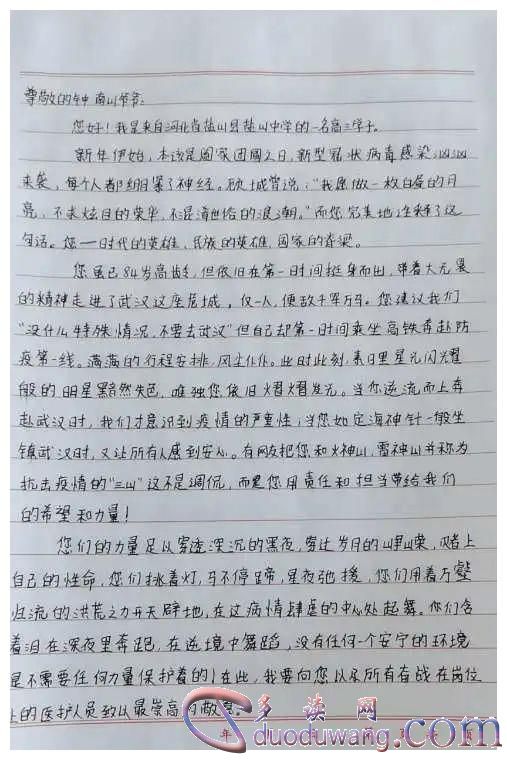 尊敬的钟南山爷爷:
您好!我是来自河北省盐山县盐山中学的一名高三学子。
新年伊始,本该是阖家团圆之日,新型冠状病毒感染汹汹
来袭,每个人都绷紧了神经。顾城曾说:“我愿做一枚白昼的月
亮,不求炫目的荣华,不混淆世俗的浪潮。”而您完美地诠释了这
句话。您一一时代的英雄、民族的英雄、国家的脊梁。
您虽已84岁高龄,但依旧在第一时间挺身而出,带着大无畏
的精神走进了武汉这座危城,仅一人,便敌千军万马。您建议我们
“没什么特殊情况,不要去武汉”但自己却第一时间乘坐高铁奔赴防
疫第一线。满满的行程安排,风尘仆仆。此时此刻,素日里星光闪耀
般的明星黯然失色,唯独您依旧熠熠发光。当你逆流而上奔
赴武汉时,我们才意识到疫情的严重性;当您如定海神针一般坐
镇武汉时,又让所有人感到安心。有网友把您和火神山,雷神山并称为
抗击疫情的“三山”这不是调侃,而是您用责任和担当带给我们
的希望和力量!
您们的力量足以穿透深沉的黑夜,穿过岁月的峥嵘,赌上
自己的性命,您们挑着灯,马不停蹄,星夜驰援,您们用着万壑
归流的洪荒之力开天辟地,在这病情肆虐的中心处起舞。你们含
着泪在深夜里奔跑,在逆境中舞蹈,没有任何一个安宁的环境
是不需要任何力量保护着的!在此,我要向您以及所有奋战在岗位
上的医护人员致以最崇高的敬意。
多读网
duoduwang.com
年 月 日 第 页